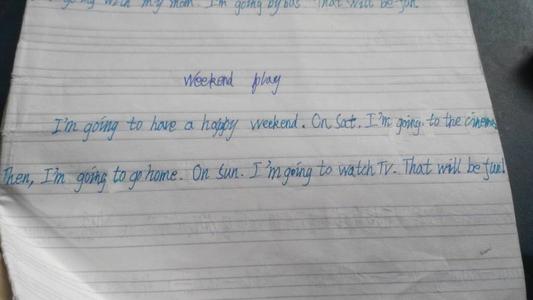 going with my mom. I'm going by bus. That will be fun.
Weekend play
I'm going to have a happy weekend. On Sat. I'm going to the cinema
Then, I'm going to go home. On Sun. I'm going to watch TV. That will be fun!